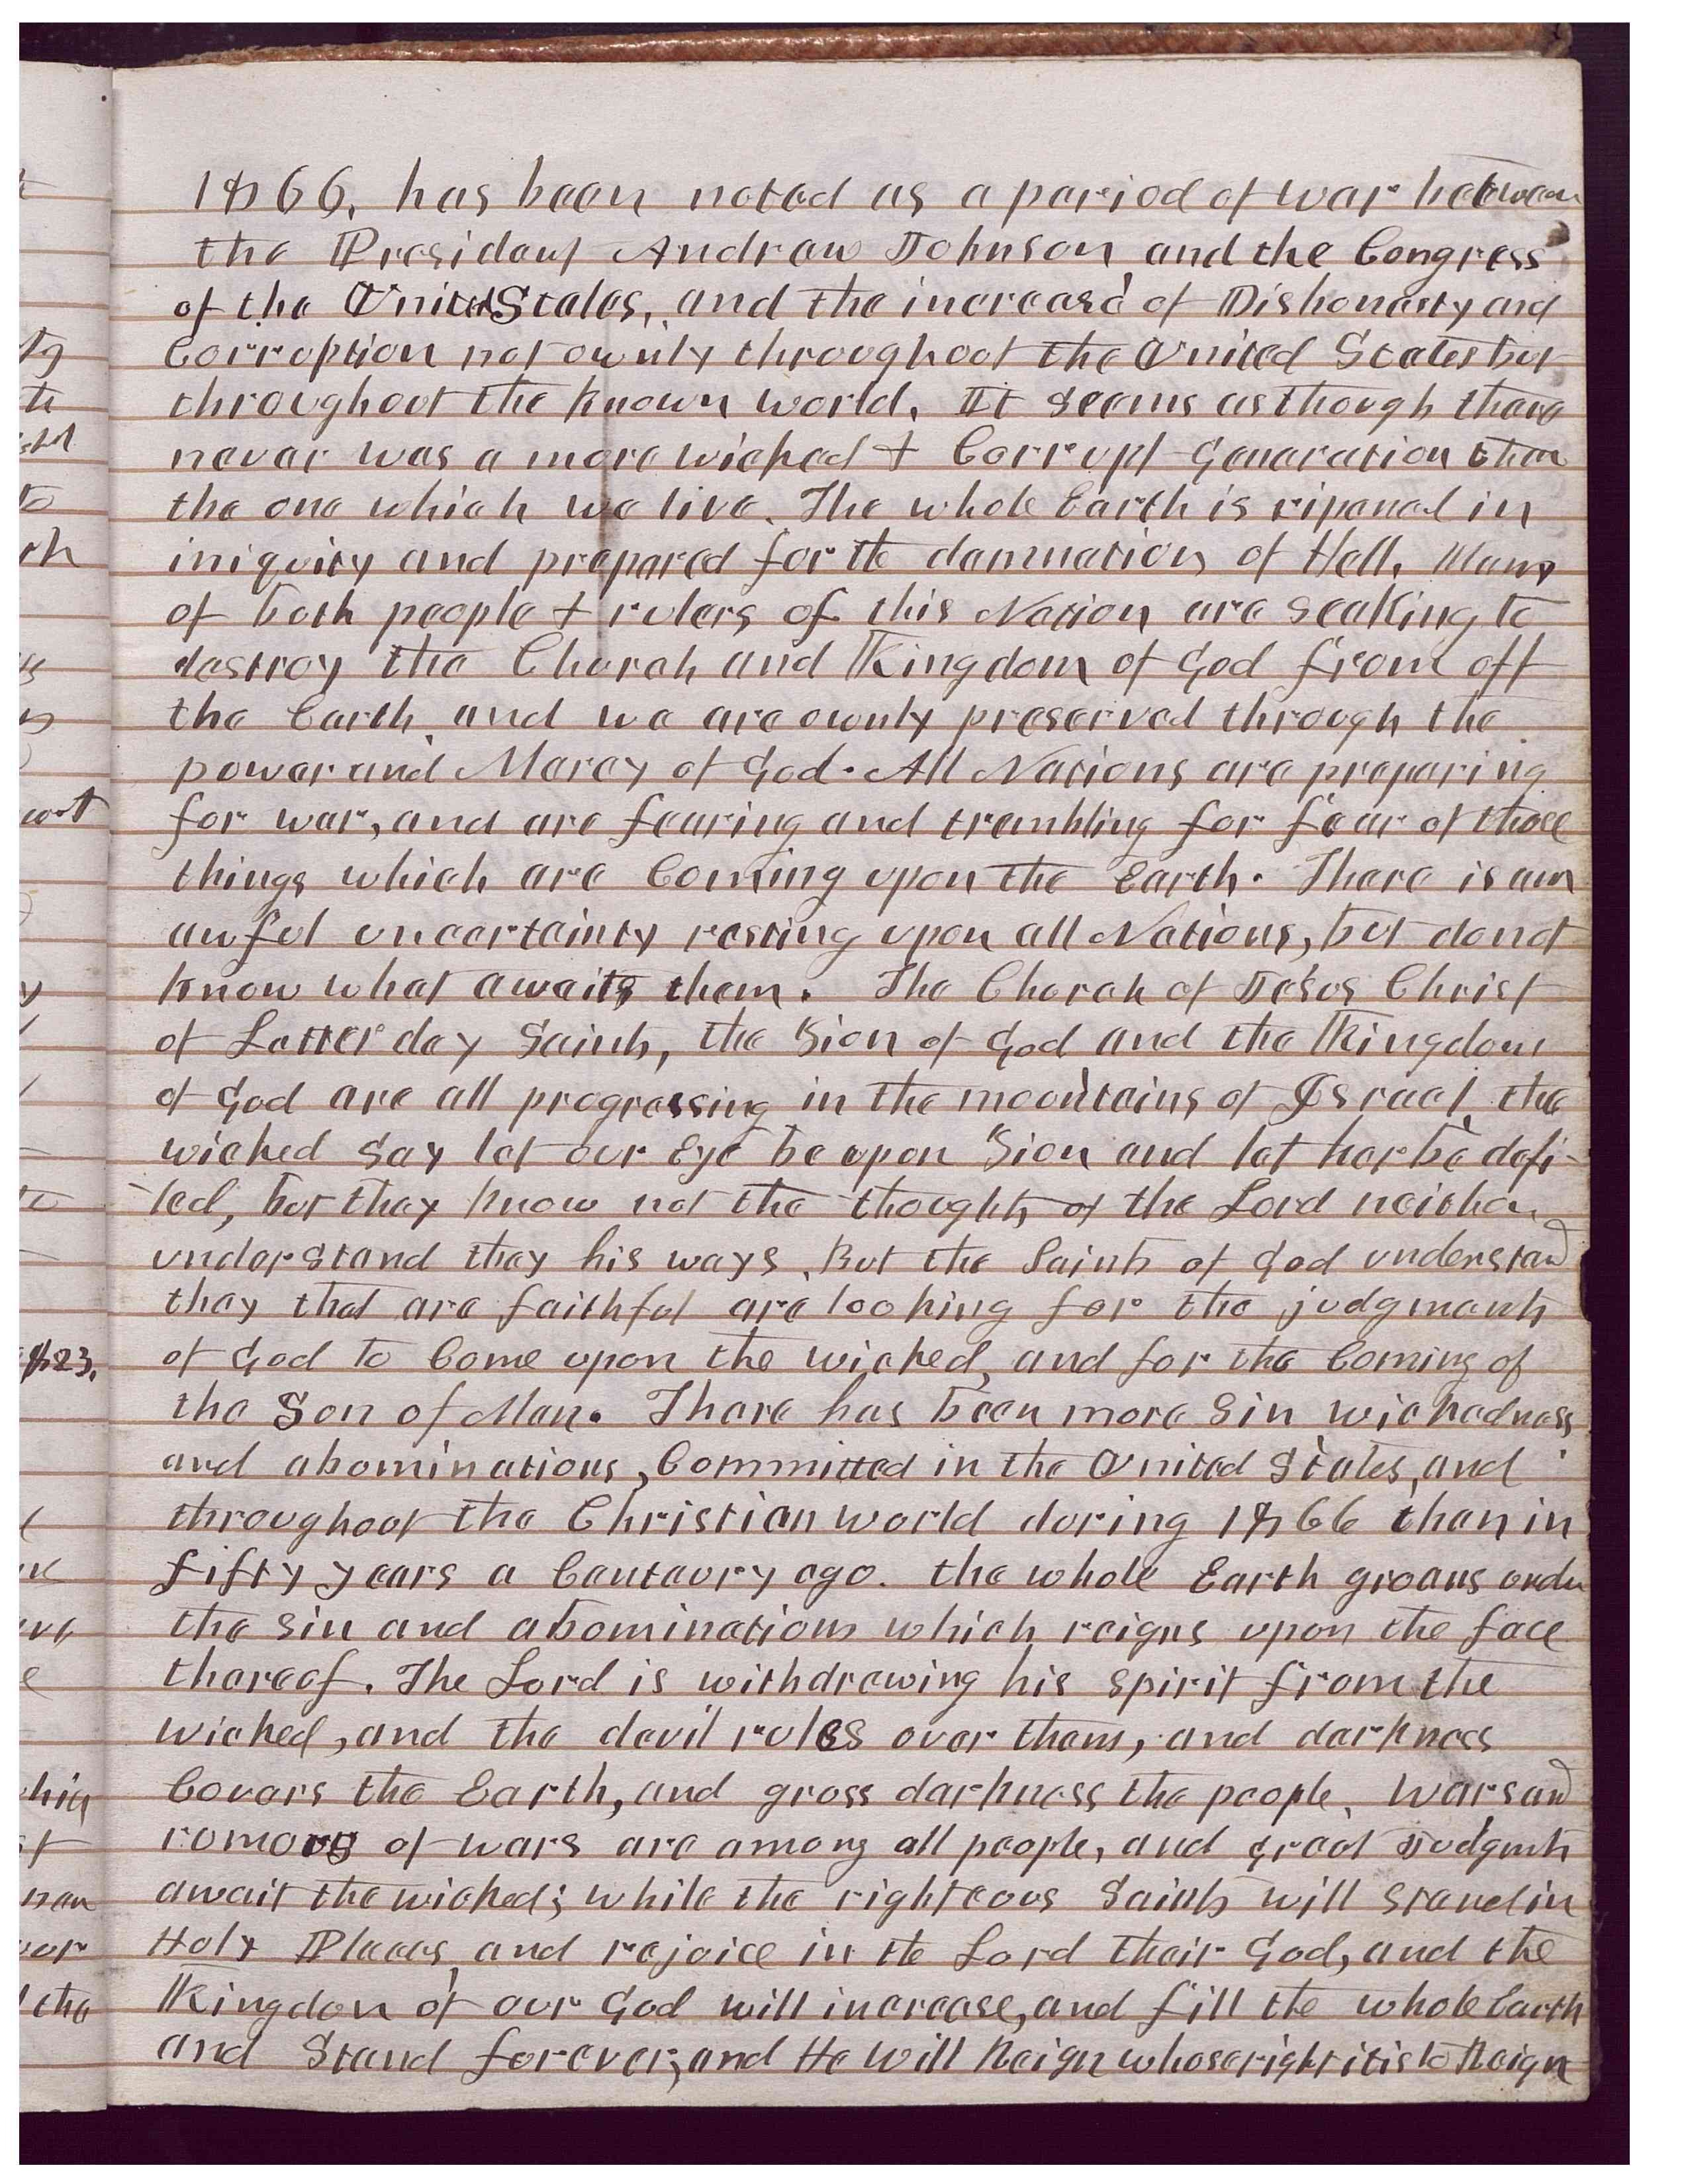 1866, has been noted as a period of war between
the President Andrew Johnson and the Congress
of the United States, and the increase of Dishonesty and
Corruption not ownly throughout the United States but
throughout the known world. It seems as though there
never was a more wicked & Corrupt Generation than
the one which we live. The whole Earth is ripened in
iniquity and prepared for the damnation of Hell. Many
of both people & rulers of this Nation are seaking to
destroy the Church and Kingdom of God from off
the Earth, and we are ownly preserved through the
power and Mercy of God. All Nations are preparing
for war, and are fearing and trembling for fear of those
things which are Coming upon the Earth. There is an
awful uncertainty resting upon all Nations, but do not
know what awaits them. The Church of Jesus Christ
of Latter day Saints, the Zion of God and the Kingdom
of God are all progressing in the mountains of Israel, the
wicked say let our Eye be upon Zion and let her be defi-
-led, but they know not the thoughts of the Lord neither
understand they his ways. But the Saints of God understand
they that are faithful are looking for the judgments
of God to Come upon the wicked, and for the Coming of
the Son of Man. There has been more sin wickedness
and abominations, Committed in the United States, and
throughout the Christian world during 1866 than in
fifty years a Centaury ago. the whole Earth groans under
the sin and abominations which reigns upon the face
thereof. The Lord is withdrawing his spirit from the
wicked, and the devil rules over them, and darkness
Covers the Earth, and gross darkness the people. Wars and
romours of wars are among all people, and great Judgmts
await the wicked; while the righteous Saints will stand in
Holy Places, and rejoice in the Lord their God, and the
Kingdon of our God will increase, and fill the whole Earth
and Stand forever, and He will Reign whose right it is to Reign